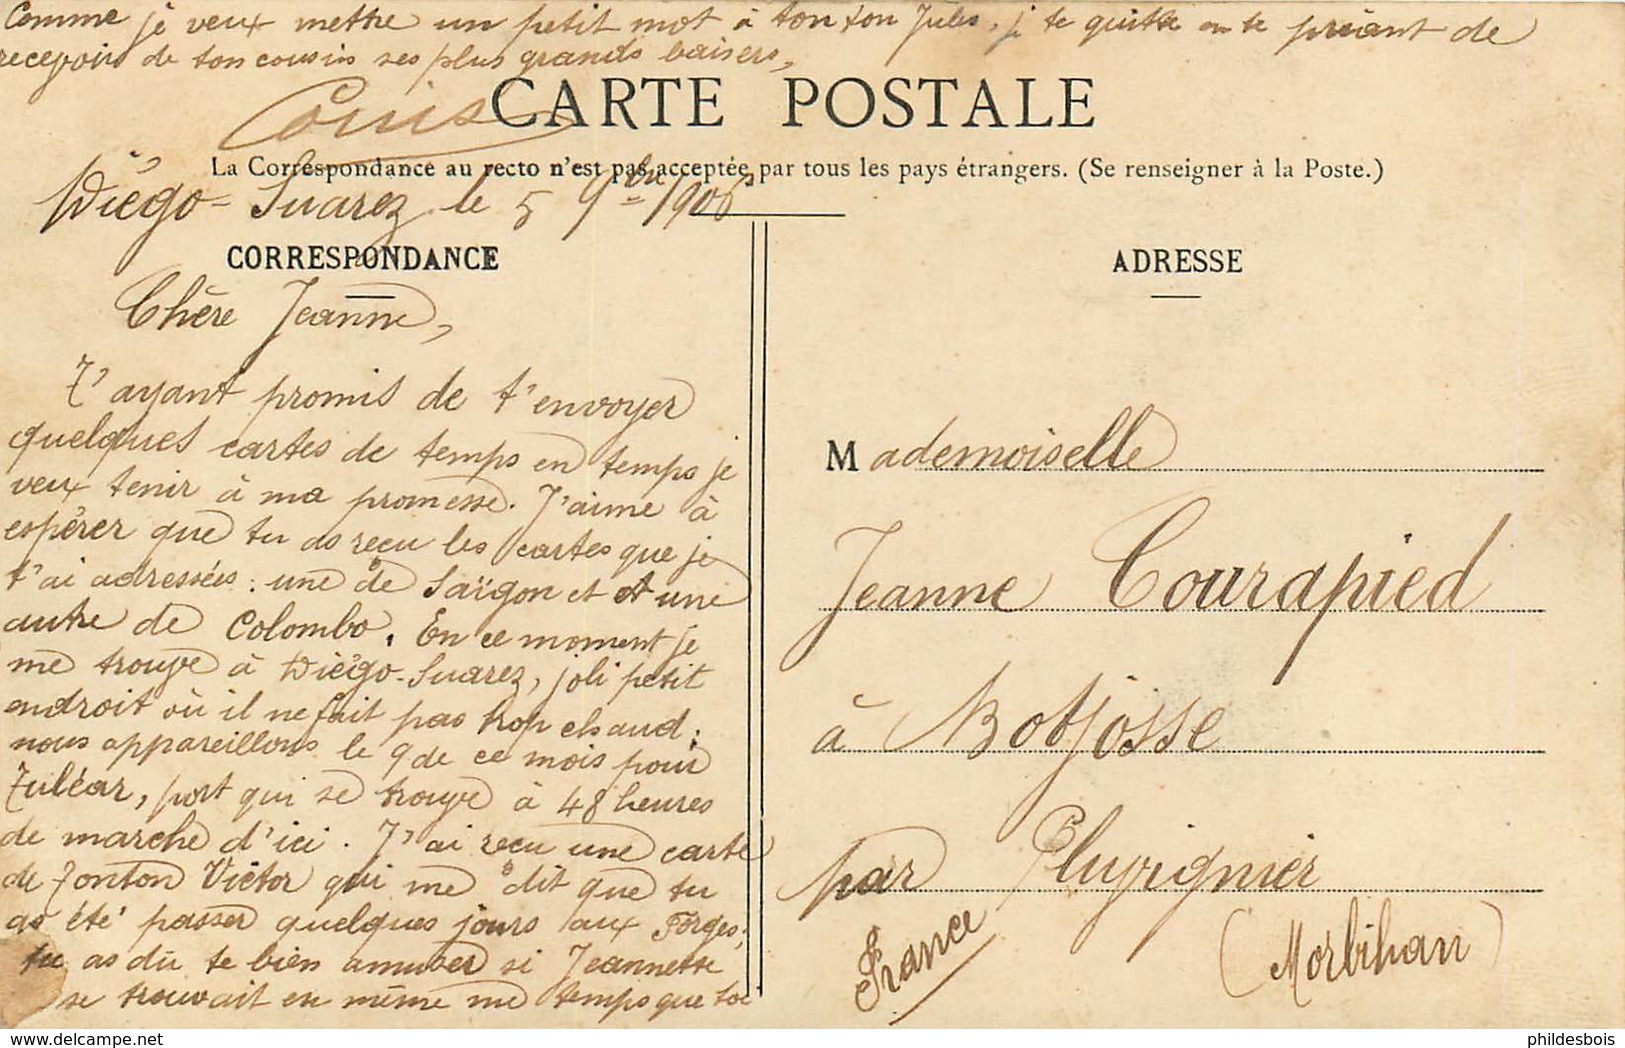 Comme je veux mettre un petit mot à ton ton Jules, je te quitte en te priant de
recevoir de ton cousin ses plus grands baisers,
Louis
CARTE POSTALE
La Correspondance au recto n'est pas acceptée par tous les pays étrangers. (Se renseigner à la Poste.)
Diégo-Suarez le 5 9bre 1906
CORRESPONDANCE
Chère Jeanne,
T'ayant promis de t'envoyer
quelques cartes de temps en temps je
veux tenir à ma promesse. J'aime à
espérer que tu as reçu les cartes que je
t'ai adressées : une de Saïgon et une
autre de Colombo. En ce moment je
me trouve à Diégo-Suarez, joli petit
endroit où il ne fait pas trop chaud ;
nous appareillons le 9 de ce mois pour
Tuléar, port qui se trouve à 48 heures
de marche d'ici. J'ai reçu une carte
de Tonton Victor qui me dit que tu
as été passer quelques jours aux Forges ;
tu as dû te bien amuser si Jeannette
se trouvait en même temps que toi
ADRESSE
Mademoiselle
Jeanne Courapied
à Botjosse
par Pluvignier
(Morbihan)
France
phildesbois